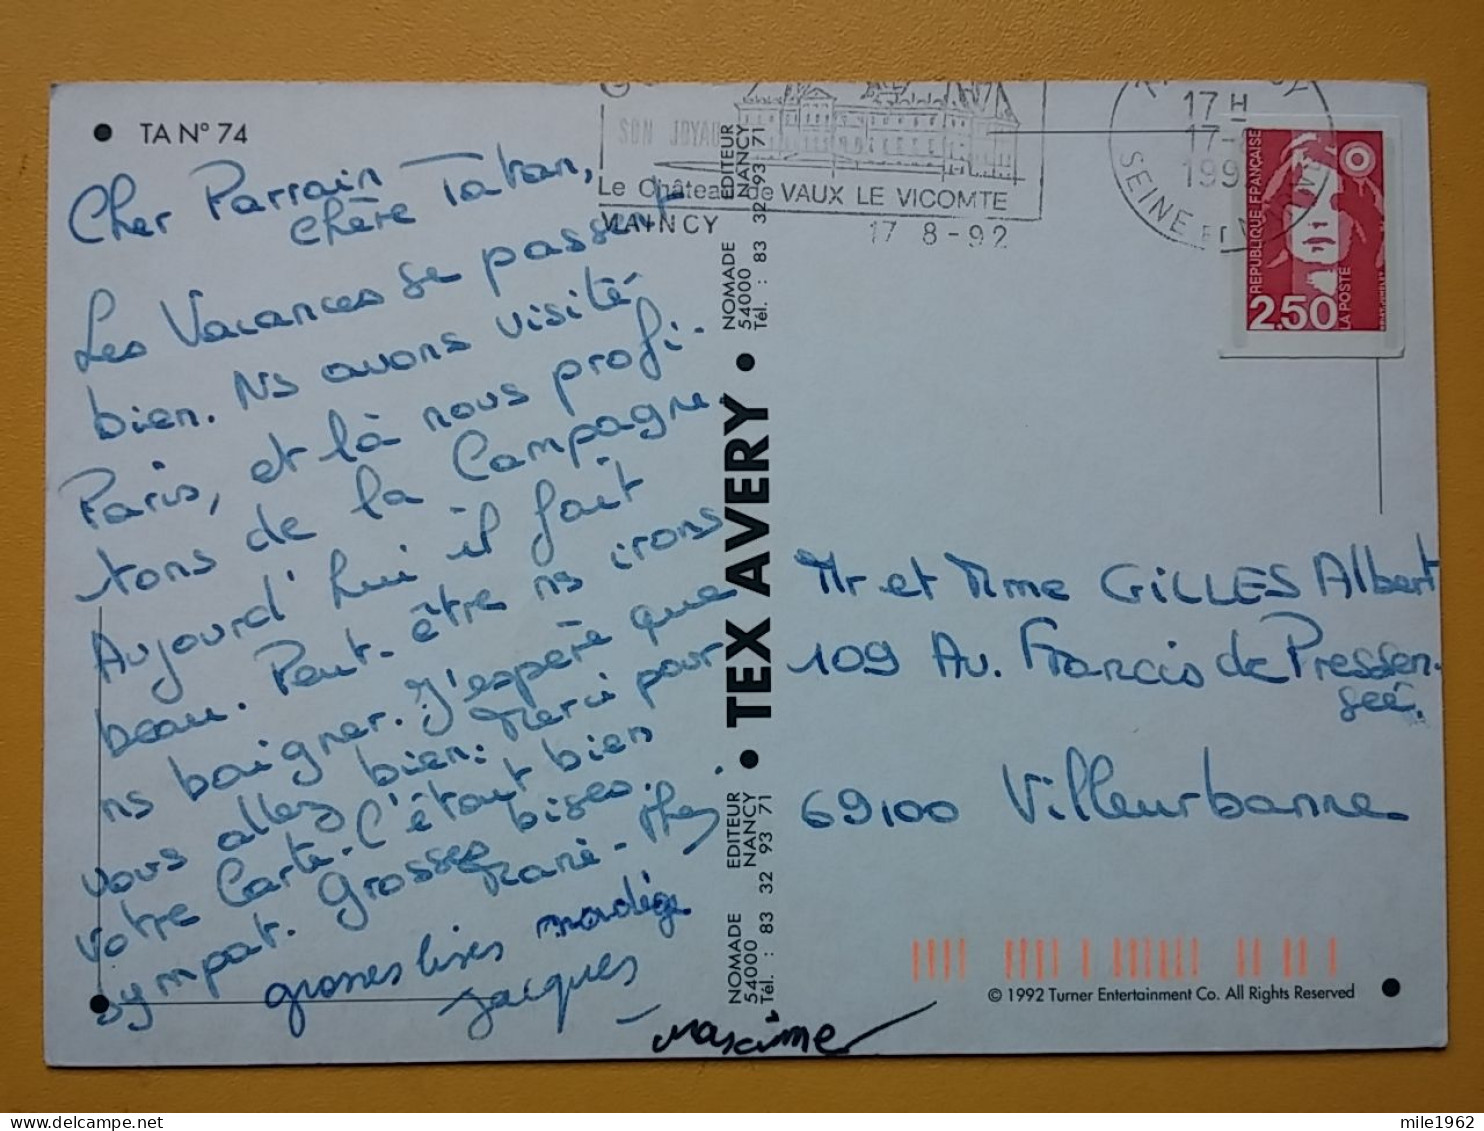 TA N° 74
Cher Parrain
chère Tatan,
Les Vacances se passent
bien. Ns avons visité
Paris, et là nous profi-
tons de la Campagne
Aujourd'hui il fait
beau. Peut-être ns irons
ns baigner. J'espère que
vous allez bien. Merci pour
votre Carte. C'était bien
sympat. Grosses bises.
grosses bises
Jacques
Maxime
SON JOYAU
Le Château de VAUX LE VICOMTE
MAINCY 17 8-92
17 H
17-
199
SEINE ET
REPUBLIQUE FRANÇAISE
2,50
LA POSTE
NOMADE EDITEUR
54000 NANCY
Tél. : 83 32 93 71
• TEX AVERY •
NOMADE EDITEUR
54000 NANCY
Tél. : 83 32 93 71
Mr et Mme GILLES Albert
109 Av. Francis de Pressen-
seé.
69100 Villeurbanne
© 1992 Turner Entertainment Co. All Rights Reserved
mile1962